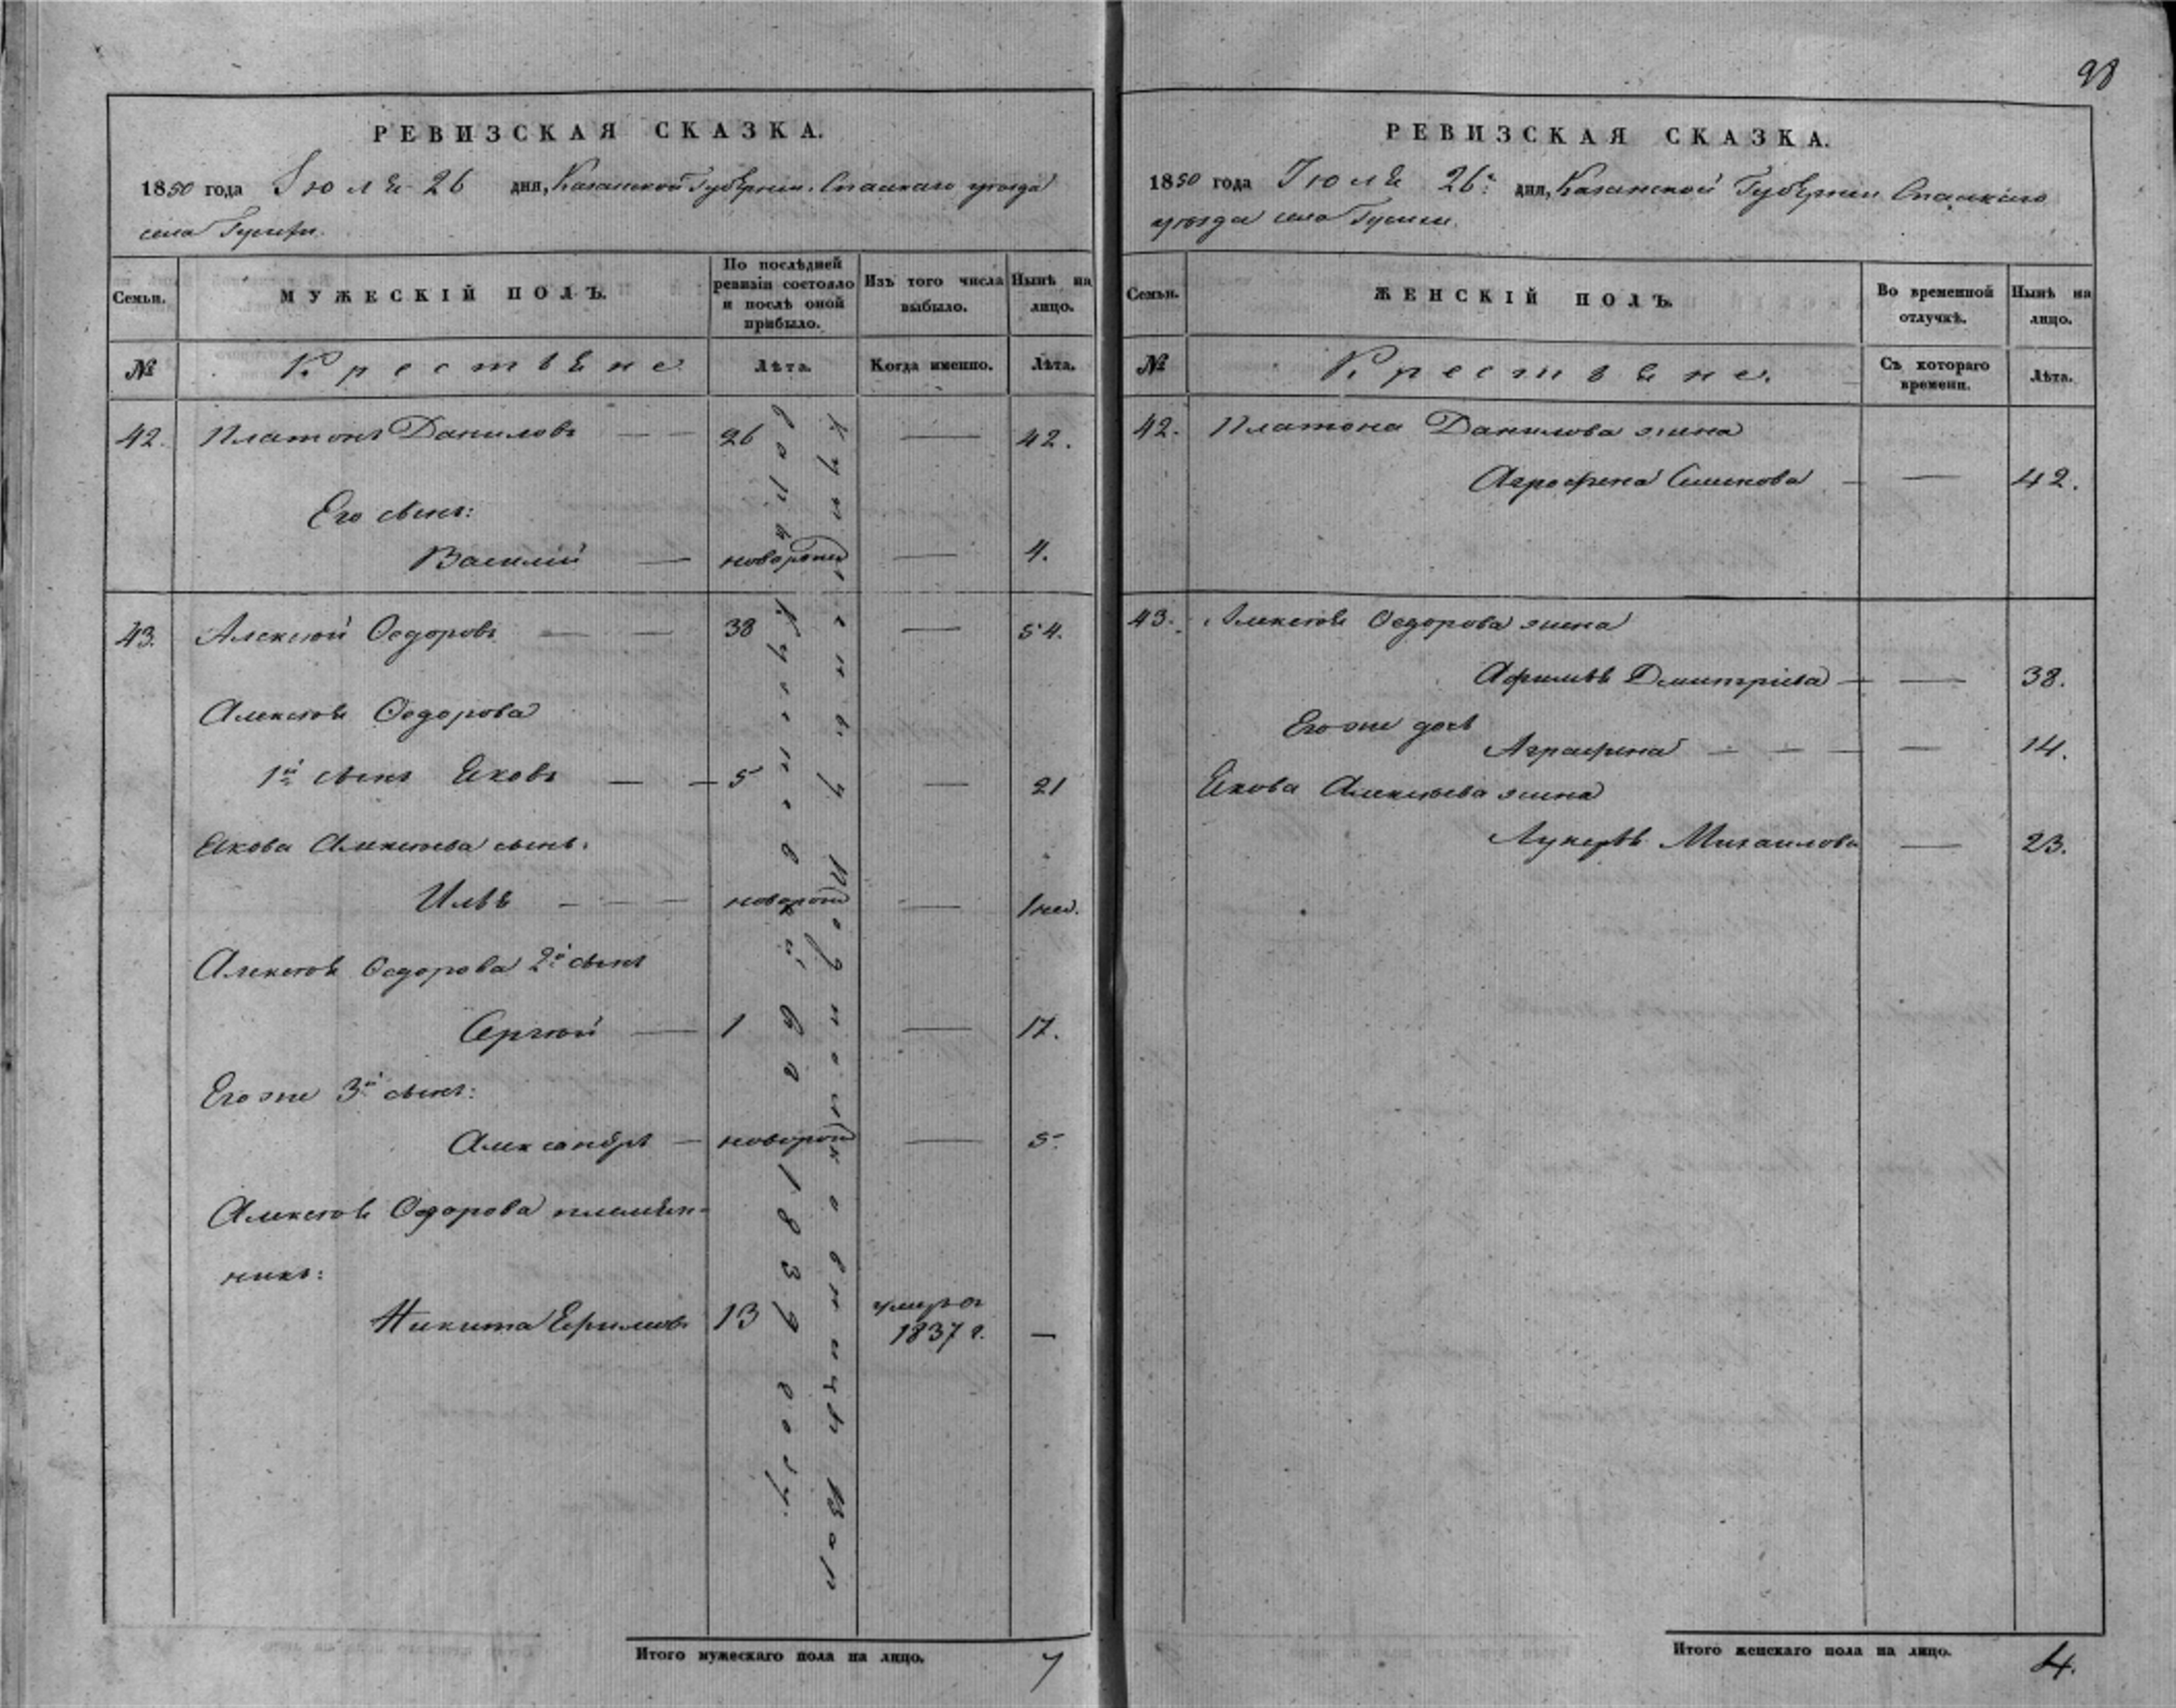 98
РЕВИЗСКАЯ СКАЗКА.
1850 года Іюля 26 дня, Казанской Губерніи Спаскаго уѣзда
села
Семьи.
МУЖЕСКІЙ ПОЛЪ.
По послѣдней ревизіи состояло и послѣ оной прибыло.
Изъ того числа выбыло.
Нынѣ на лицо.
№
Крестьяне
Лѣта.
Когда именно.
Лѣта.
42. Платонъ Даниловъ — — 26 — 42.
Его сынъ:
Василій — новорожд — 4.
43. Алексѣй Ѳедоровъ — — 38 — 54.
Алексѣя Ѳедорова
1й сынъ Яковъ — — 5 — 21
Якова Алексѣева сынъ:
Илья — — — новорожд — 1 нед.
Алексѣя Ѳедорова 2й сынъ
Сергѣй — 1 — 17.
Его же 3й сынъ:
Александръ — новорожд — 5.
Алексѣя Ѳедорова племян-
никъ:
Никита Ефимовъ 13 умеръ въ 1837 г. —
1839 году
Итого мужескаго пола на лицо. 7
РЕВИЗСКАЯ СКАЗКА.
1850 года Іюля 26. дня, Казанской Губерніи Спаскаго
уѣзда села
Семьи.
ЖЕНСКІЙ ПОЛЪ.
Во временной отлучкѣ.
Нынѣ на лицо.
№
Крестьяне.
Съ котораго времени.
Лѣта.
42. Платона Данилова жена
Аграфена Семенова — — 42.
43. Алексѣя Ѳедорова жена
Афимья Дмитріева — — 38.
Его же дочь
Аграфена — — — — 14.
Якова Алексѣева жена
Лукерья Михаилова — 23.
Итого женскаго пола на лицо. 4.